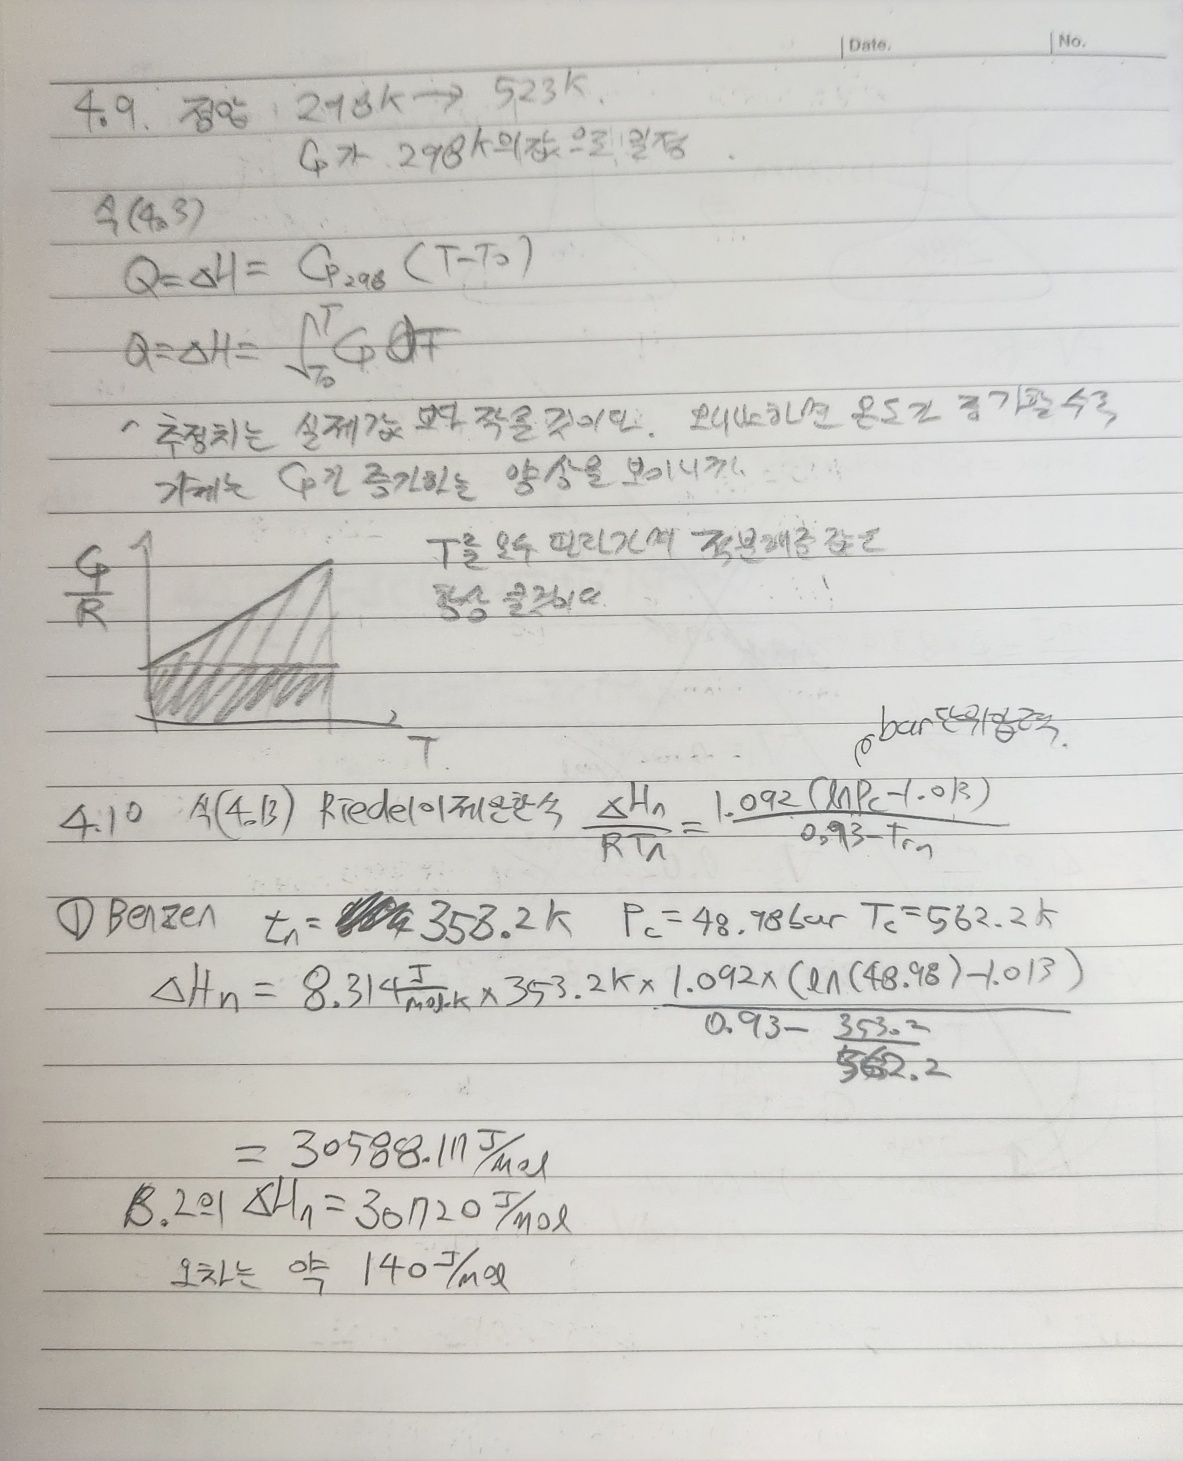 Date. No.
4.9. 정압 298K → 523K.
Cp가 298K의 값으로 일정.
식(4.3)
Q=ΔH= Cp298 (T-T0)
Q=ΔH= ∫T0^T Cp dT
추정치는 실제값 보다 작을 것이다. 왜냐하면 온도가 증가할수록
기체는 Cp가 증가하는 양상을 보이니까.
Cp/R
T를 오수 적분해준 값은
항상 클것이다
T
bar단위압력.
4.10 식(4.13) Riedel이 제안한식 ΔHn/RTn = 1.092(lnPc-1.013)/0.93-Trn
① Benzen tn= 353.2K Pc=48.98bar Tc=562.2K
ΔHn = 8.314 J/mol·K × 353.2K × 1.092×(ln(48.98)-1.013)/0.93- 353.2/562.2
= 30588.17 J/mol
B.2의 ΔHn=30720 J/mol
오차는 약 140 J/mol